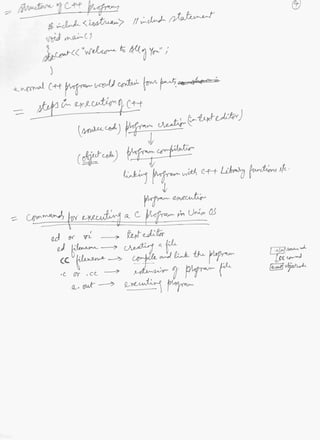 = Structure of C++ program
# include <iostream> // include statement
void main()
{
cout << "Welcome to All of You" ;
}
a normal C++ program would contain four parts
= steps in execution of C++
(source code) program creation (in text editor)
↓
(object code) program compilation
↓
linking program with C++ Library functions etc.
↓
program execution
= Commands for executing a C program in Unix OS
ed or vi → text editor
ed filename → creating a file
CC filename → compile and link the program
.c or .cc → extension of program file
a.out → executing program